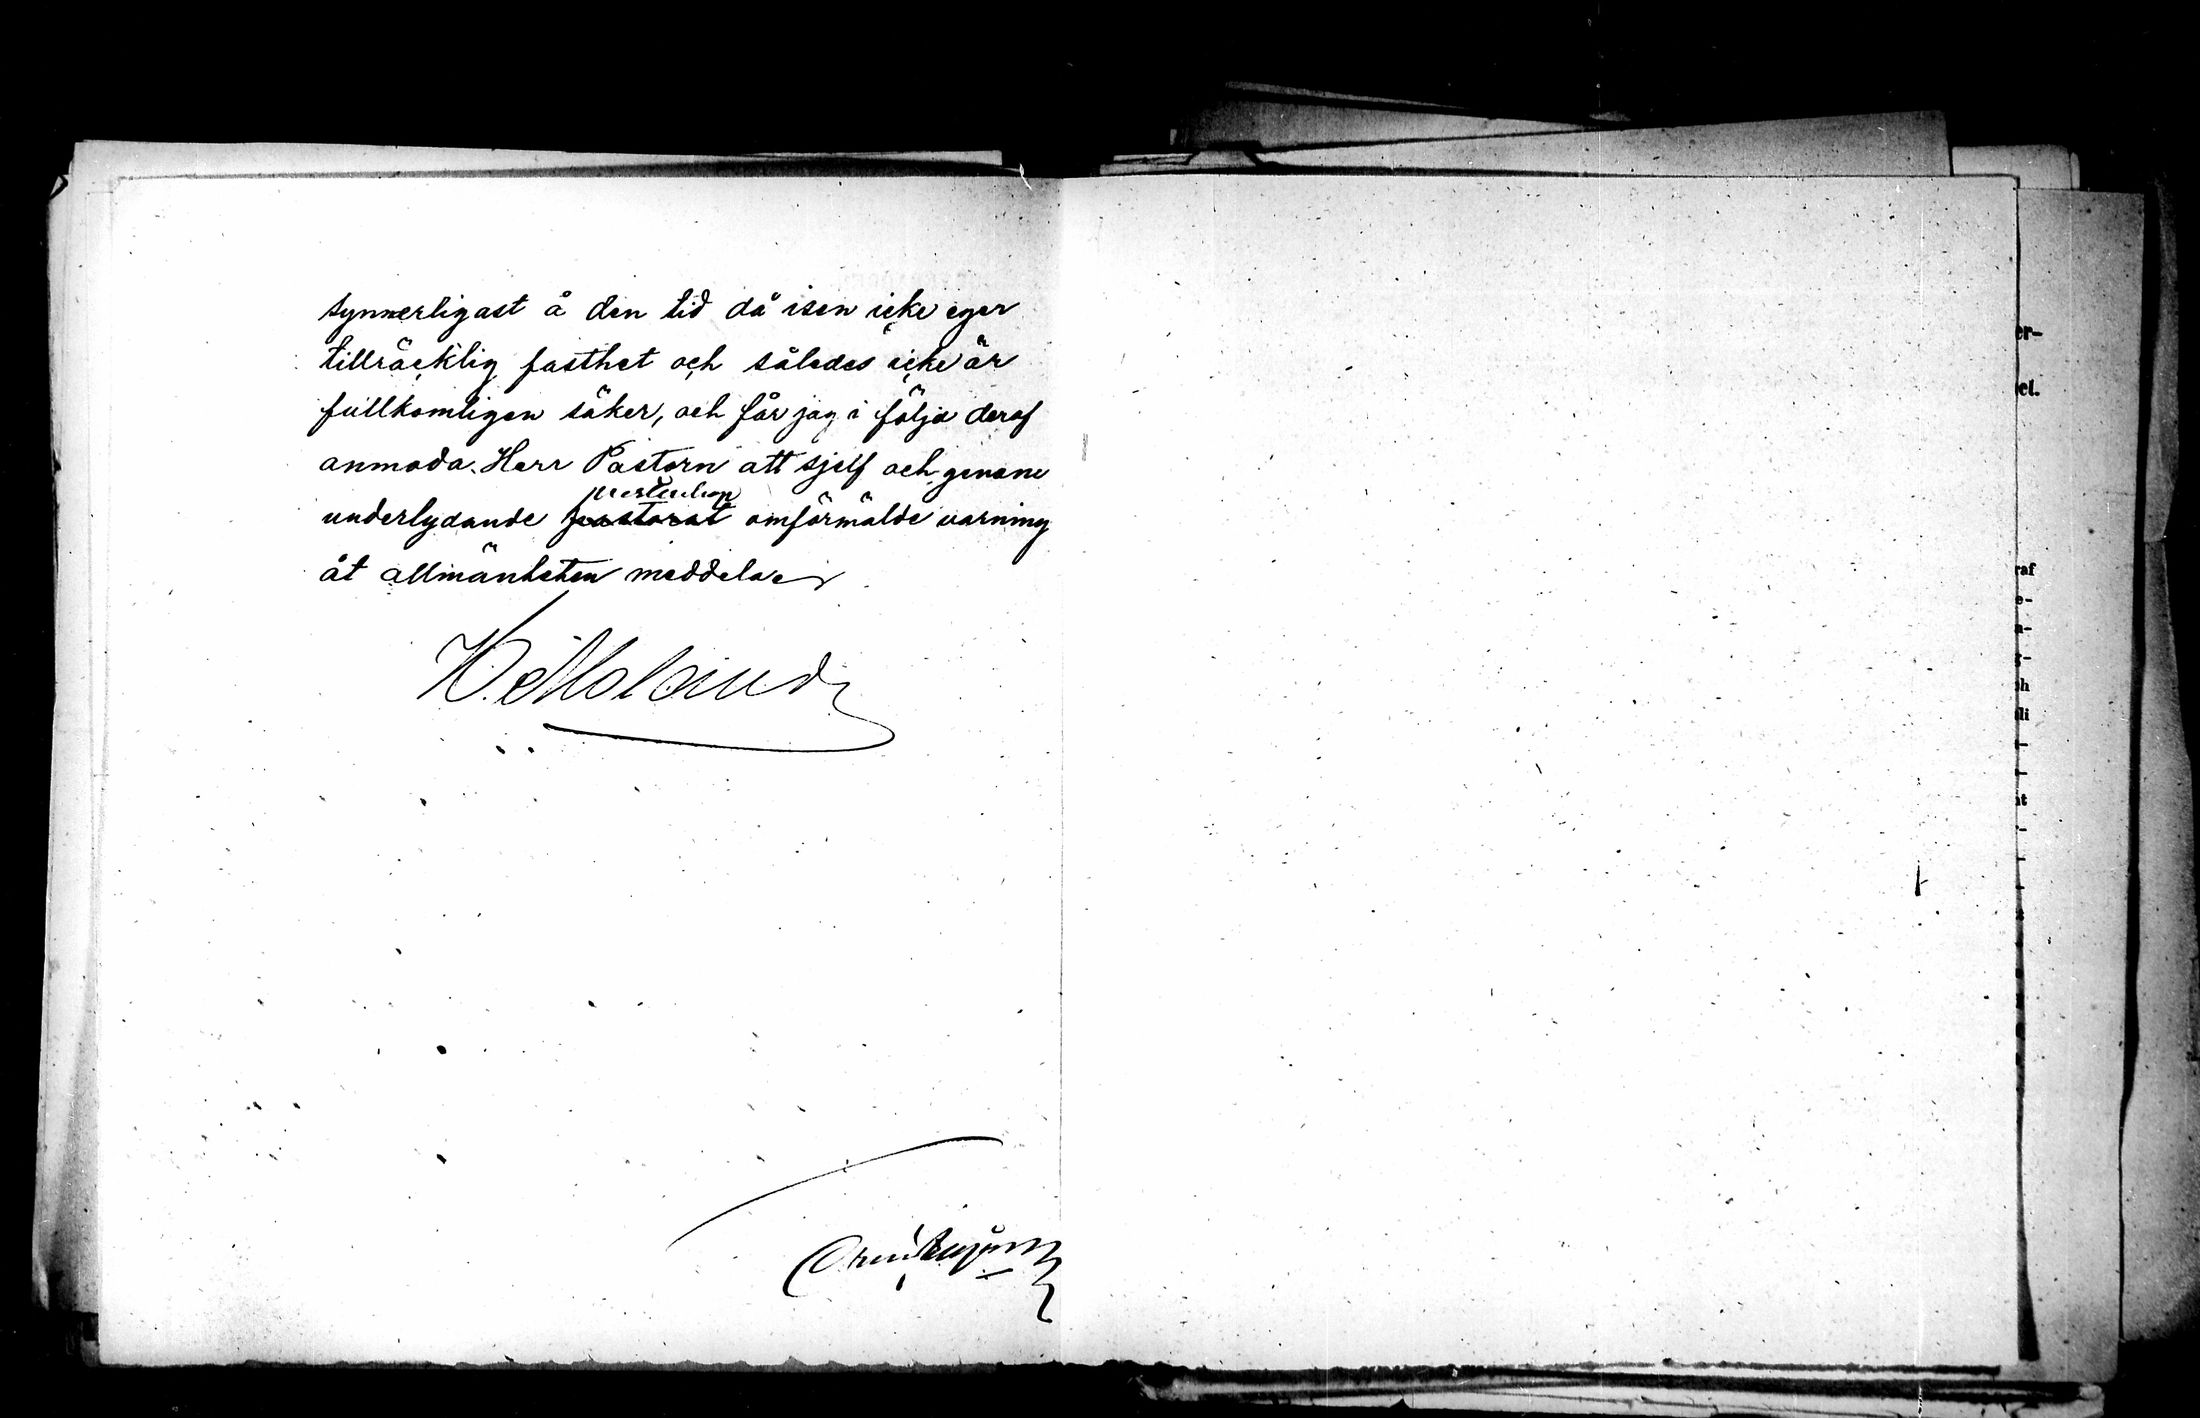 synnerligast å den tid då isen icke eger
tillräcklig fasthet och således icke är
fullkomligen säker, och får jag i följd deraf
anmoda Herr Pastorn att sjelf och genom
presterskap
underlydande pastorat omförmälde varning
åt allmänheten meddela.
er-
et.
raf
e-